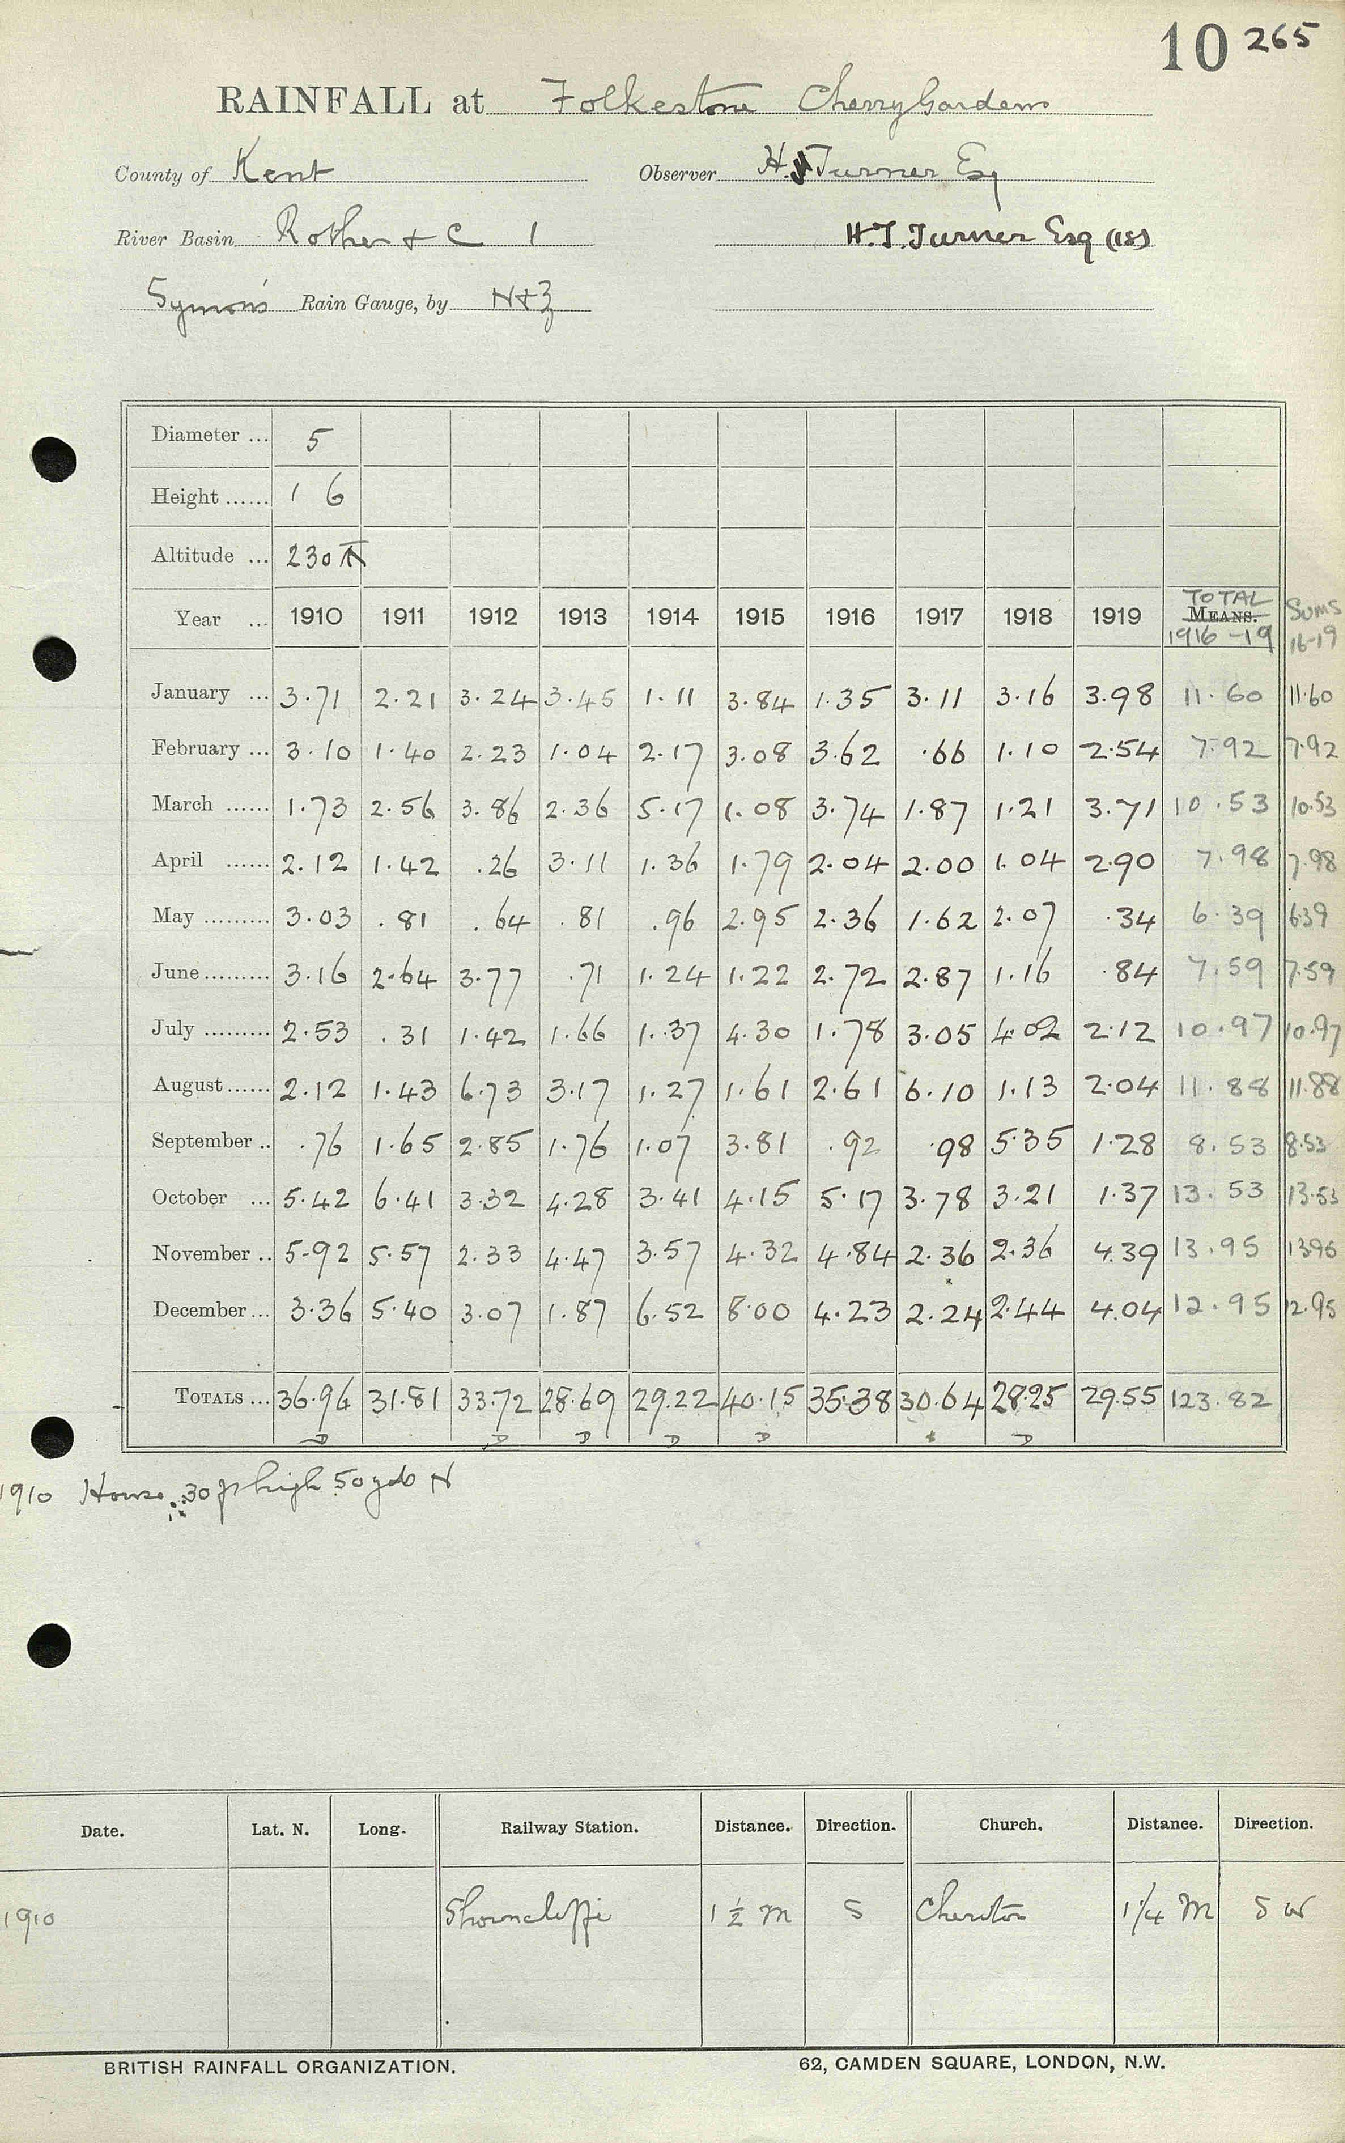 10 265
RAINFALL at Folkestone Cherry Gardens
County of Kent Observer H. Turner Esq
River Basin Rother & C 1 H.T. Turner Esq (18)
Symon's Rain Gauge, by N & Z
Diameter ... 5
Height ...... 1 6
Altitude ... 230
Year ... 1910 1911 1912 1913 1914 1915 1916 1917 1918 1919 TOTAL MEANS. 1916-19 SUMS 16-19
January ... 3.71 2.21 3.24 3.45 1.11 3.84 1.35 3.11 3.16 3.98 11.60 11.60
February ... 3.10 1.40 2.23 1.04 2.17 3.08 3.62 .66 1.10 2.54 7.92 7.92
March ...... 1.73 2.56 3.86 2.36 5.17 1.08 3.74 1.87 1.21 3.71 10.53 10.53
April ...... 2.12 1.42 .26 3.11 1.36 1.79 2.04 2.00 1.04 2.90 7.98 7.98
May ......... 3.03 .81 .64 .81 .96 2.95 2.36 1.62 2.07 .34 6.39 6.39
June ......... 3.16 2.64 3.77 .71 1.24 1.22 2.72 2.87 1.16 .84 7.59 7.59
July ......... 2.53 .31 1.42 1.66 1.37 4.30 1.78 3.05 4.02 2.12 10.97 10.97
August ...... 2.12 1.43 6.73 3.17 1.27 1.61 2.61 6.10 1.13 2.04 11.88 11.88
September .. .76 1.65 2.85 1.76 1.07 3.81 .92 .98 5.35 1.28 8.53 8.53
October ... 5.42 6.41 3.32 4.28 3.41 4.15 5.17 3.78 3.21 1.37 13.53 13.53
November .. 5.92 5.57 2.33 4.47 3.57 4.32 4.84 2.36 2.36 4.39 13.95 13.95
December ... 3.36 5.40 3.07 1.87 6.52 8.00 4.23 2.24 2.44 4.04 12.95 12.95
TOTALS ... 36.96 31.81 33.72 28.69 29.22 40.15 35.38 30.64 28.25 29.55 123.82
D D D D D * D
1910 House 30 ft high 50 yds N
Date. Lat. N. Long. Railway Station. Distance. Direction. Church. Distance. Direction.
1910 Shorncliffe 1 ½ m S Cheriton 1 1/4 m S W
BRITISH RAINFALL ORGANIZATION. 62, CAMDEN SQUARE, LONDON, N.W.